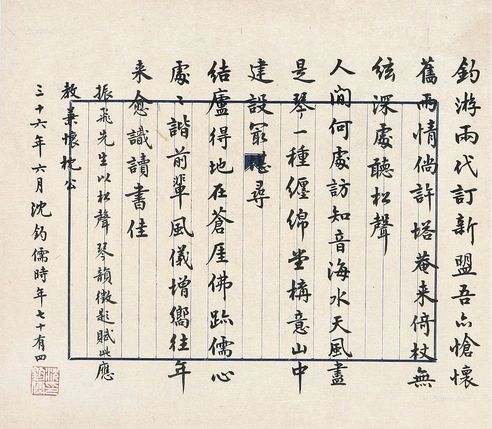 釣游兩代訂新盟吾亦愴懷
舊雨情倘許塔菴来倚杖無
絃深處聽松聲
人間何處訪知音海水天風盡
是琴一種纏綿堂構意山中
建設冣堪尋
結廬得地在蒼厓佛跡儒心
處〻諧前輩風儀增嚮往年
来愈識讀書佳
振飛先生以松聲琴韻徵題賦此應
教兼懷枕公
三十六年六月沈鈞儒時年七十有四